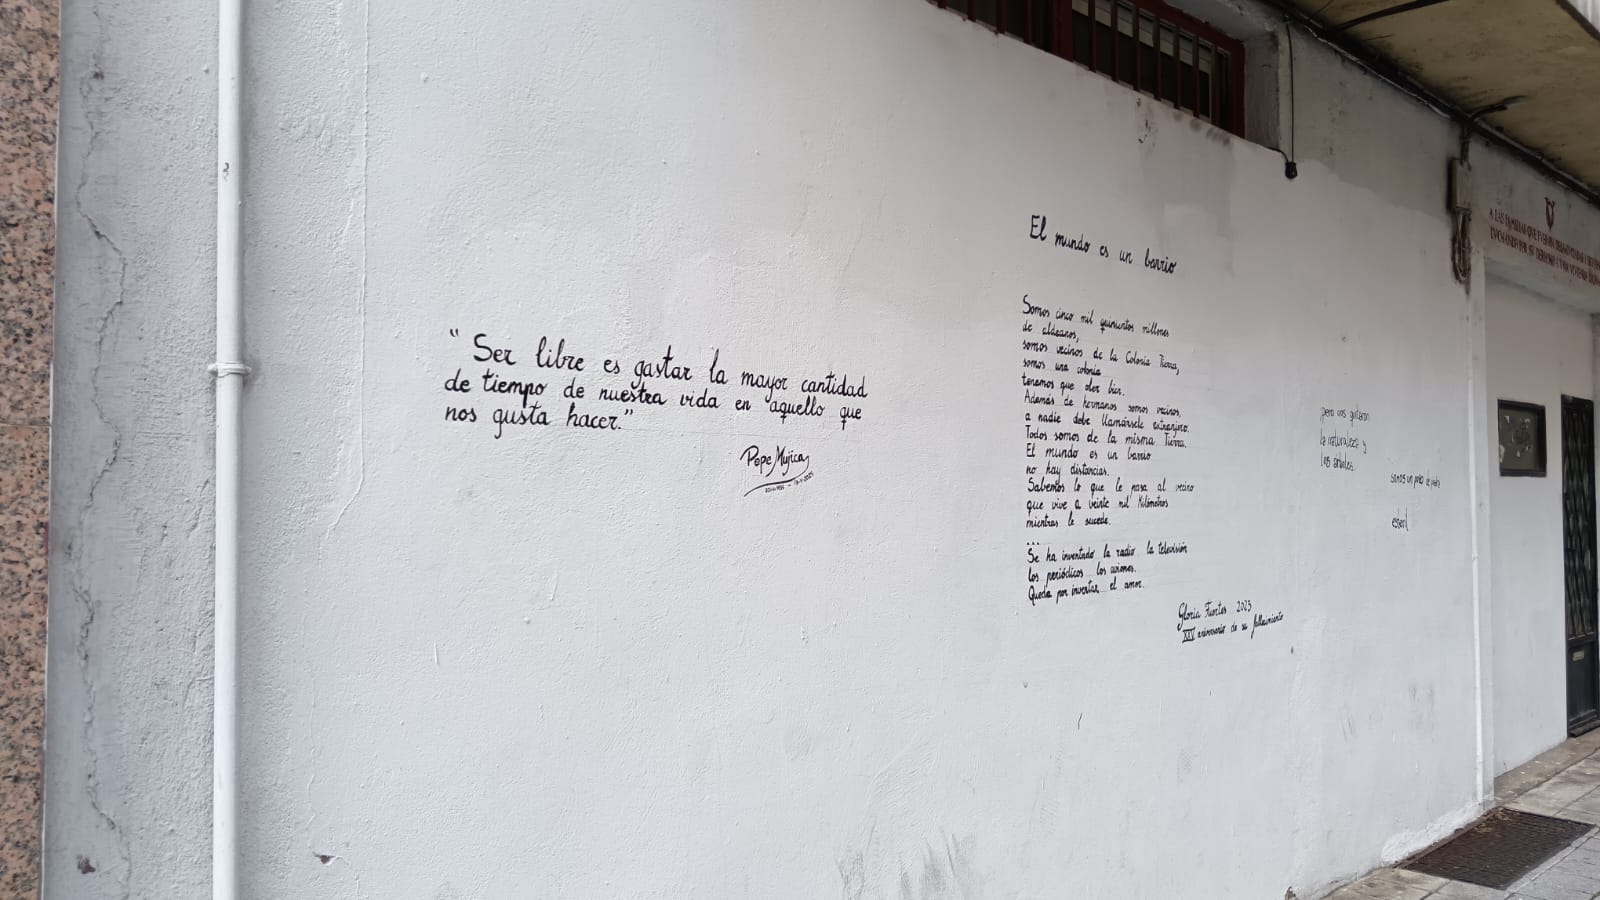 " Ser libre es gastar la mayor cantidad
de tiempo de nuestra vida en aquello que
nos gusta hacer."
Pepe Mujica
El mundo es un barrio
Somos cinco mil quinientos millones
de aldeanos,
somos vecinos de la Colonia Tierra,
somos una colonia
tenemos que oler bien.
Además de hermanos somos vecinos,
a nadie debe llamársele extranjero.
Todos somos de la misma Tierra.
El mundo es un barrio
no hay distancias.
Sabemos lo que le pasa al vecino
que vive a veinte mil Kilómetros
mientras le sucede.
...
Se ha inventado la radio la televisión
los periódicos los aviones.
Queda por inventar el amor.
Gloria Fuertes 2023
XXV aniversario de su fallecimiento
pero nos quitaron
la naturaleza y
los árboles.
somos un patio de
A LAS FAMILIAS QUE FUERON
LUCHANDO POR SU DERECHO A UNA VIVIENDA